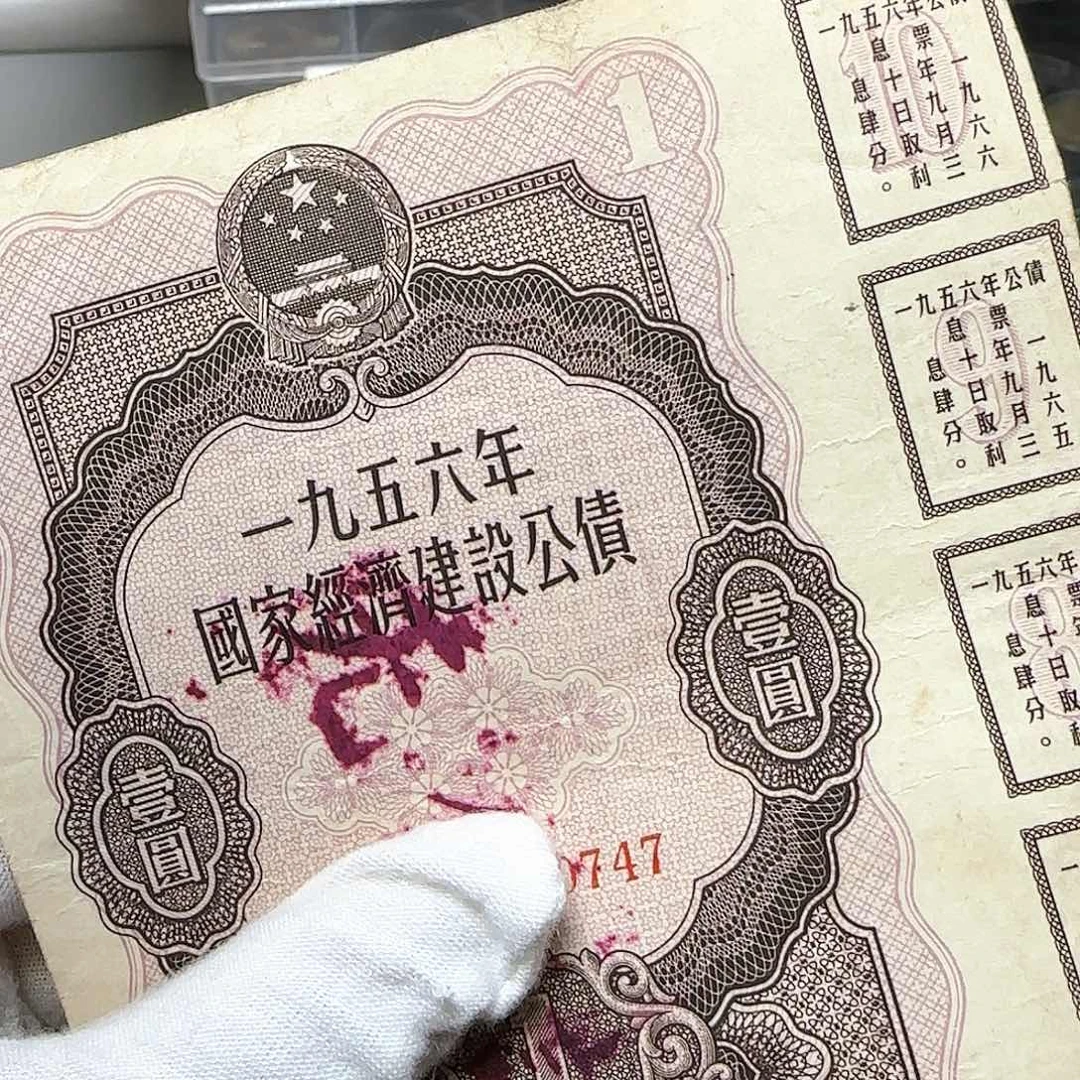 1
一九五六年
國家經濟建設公債
壹圓
壹圓
0747
一九五六年公債
息票
10
一九六六
年九月三
十日取利
息肆分。
一九五六年公債
息票
9
一九六五
年九月三
十日取利
息肆分。
一九五六年
息票
8
十日取利
息肆分。
一